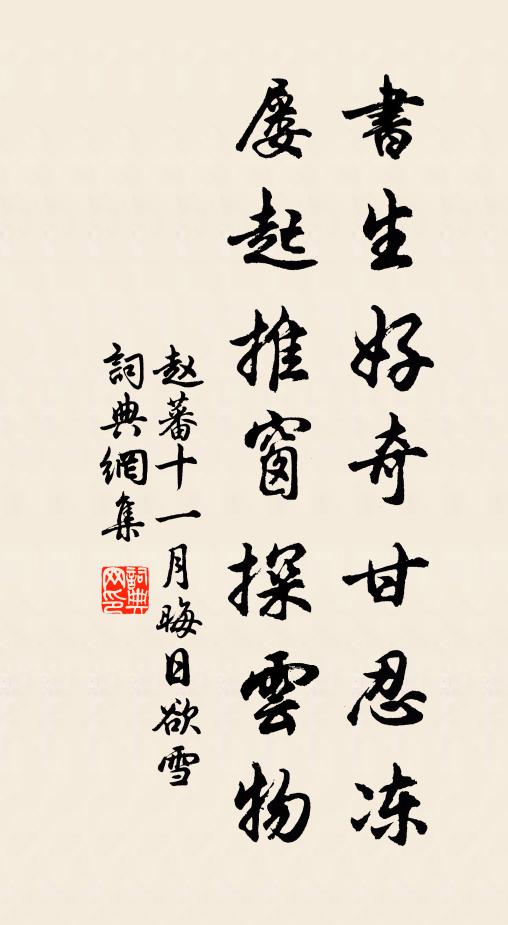 書生好奇甘忍冻
屢起推窗探雲物
赵蕃十一月晦日欲雪
詞典網集
詞典网印